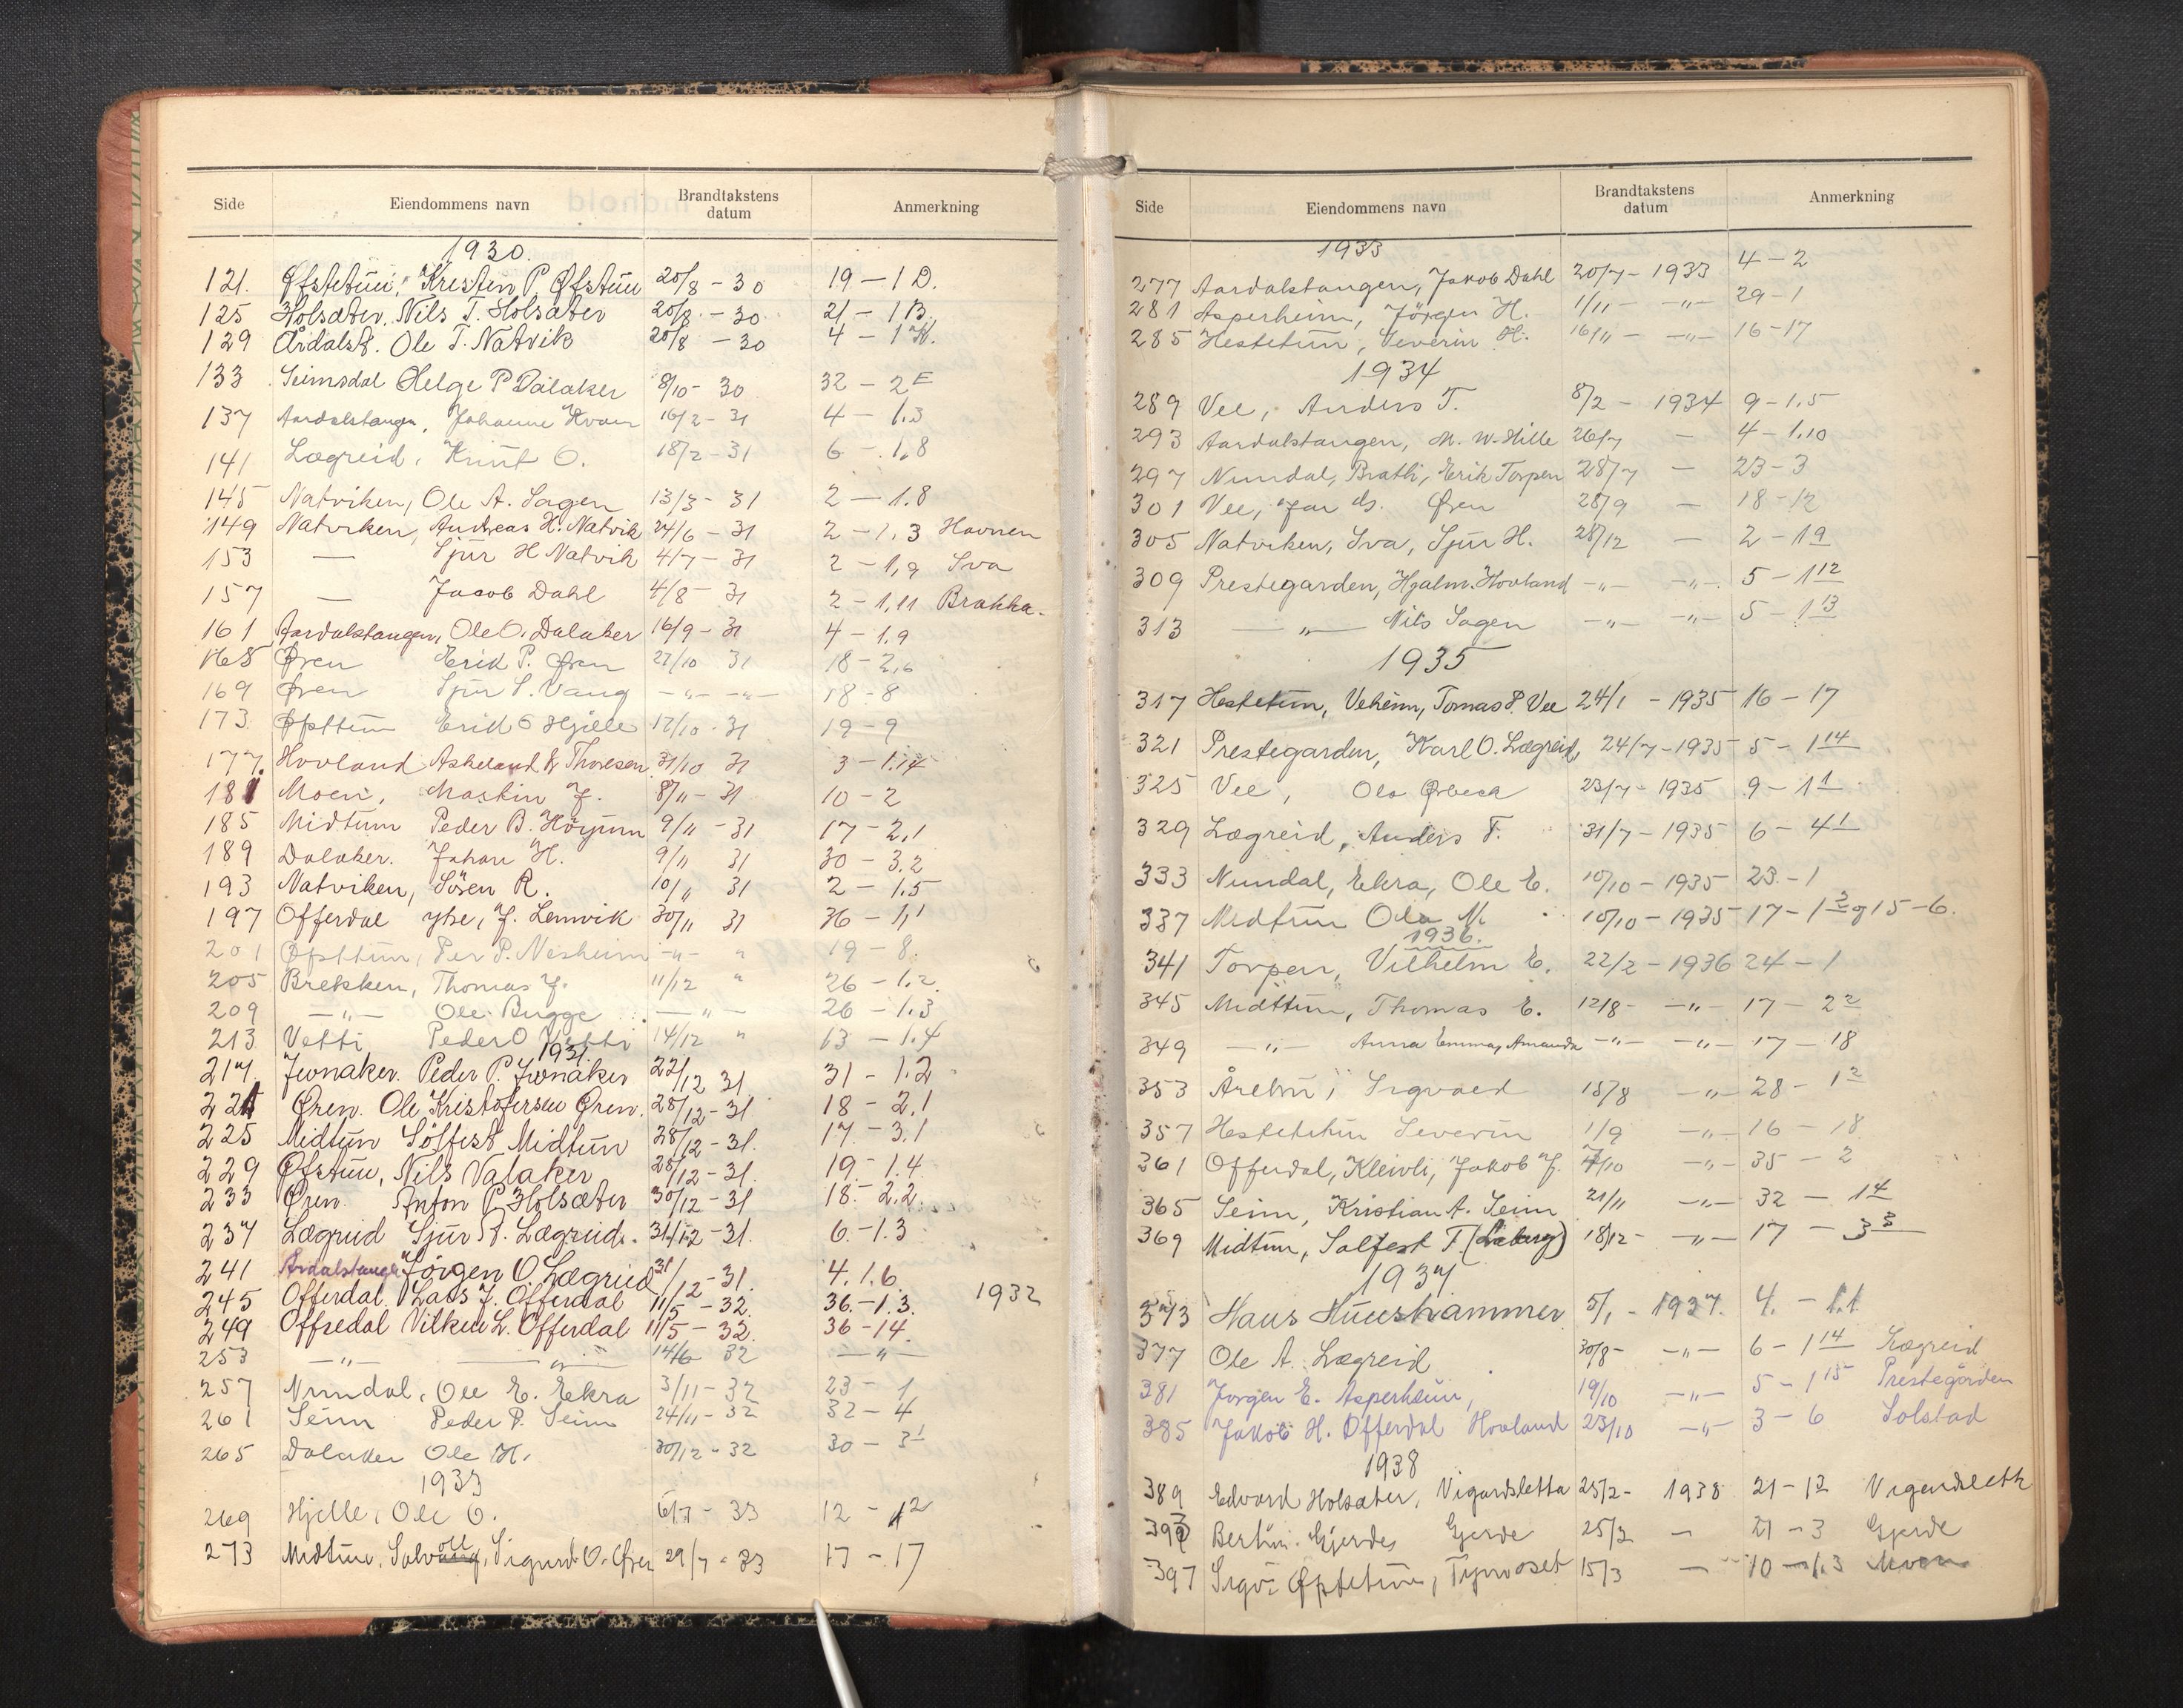 Side Eiendommens navn Brandtakstens datum Anmerkning
1930.
121. Øfstetun, Kristen P. Øfstun 20/8 - 30 19 - 1 D.
125 Holsæter. Nils T. Holsæter 20/8 - 30 21 - 1.B.
129 Årdalst. Ole T. Natvik 20/8 - 30 4 - 1 K.
133 Seimsdal Helge P Dalaker 8/10 - 30 32 - 2E
137 Aardalstangen, Johanne Kvam 16/2 - 31 4 - 1.3
141 Lægreid, Knut O. 18/2 - 31 6 - 1.8
145 Natviken, Ole A. Sagen 13/3 - 31 2 - 1.8
149 Natviken, Andreas H. Natvik 24/6 - 31 2 - 1.3 Havnen
153 — Sjur H Natvik 4/7 - 31 2 - 1,9 Sva
157 — Jacob Dahl 4/8 - 31 2 - 1,11 Brakka.
161 Aardalstangen, Ole O. Dalaker 16/9 - 31 4 - 1.9
165 Øren Erik P. Øren 27/10 31 18 - 2,6
169 Øren Sjur S. Vang -"- -"- 18 - 8
173 Øpsttun Erik O Hjelle 17/10 - 31 19 - 9
177. Hovland Askeland & Thoresen 31/10 31 3 - 1.14
181 Moen, Martin J. 8/11 - 31 10 - 2
185 Midtun Peder B. Höyum 9/11 - 31 17 - 2,1
189 Dalaker. Johan H. 9/11 31 30 - 3.2
193 Natviken, Sören R. 10/11 31 2 - 1.5
197 Offerdal ytre, J. Lemvik 30/11 31 36 - 1,1
201 Øpsttun, Per P. Nesheim -"- " 19 - 8.
205 Brekken, Thomas J. 11/12 " 26 - 1.2.
209 -"- Ole Bugge -"- 26 - 1.3
213 Vetti Peder O Vetti 14/12 " 13 - 1.4
1931.
217. Juvnaker. Peder P. Juvnaker 22/12 31 31 - 1.2
221 Øren. Ole Kristofersen Øren. 28/12 - 31 18 - 2.1
225 Midtun Sölfest Midtun 28/12 - 31. 17. - 3.1
229 Øfstun, Nils Valaker 28/12 - 31. 19 - 1.4
233 Øren. Anton P Holsæter 30/12 - 31 18. 2.2.
237 Lægreid Sjur A. Lægreid. 31/12 - 31. 6. - 1.3
241 Årdalstangen Jörgen O Lægreid 31/12 - 31. 4. 1.6
245 Offerdal. Lars J. Offerdal 11/5 - 32. 36. - 1.3. 1932
249 Offredal Vilken L. Offerdal 11/5 - 32. 36 - 14.
253 -"- -"- 14/6 32 -"-
257 Nundal, Ole E. Ekra 3/11 - 32 23 - 1
261 Seim Peder P. Seim 24/11 - 32 32 - 4
265 Dalaker Ole H. 30/12 - 32 30 - 31
1933
269 Hjelle, Ole O. 6/7 - 33 12 - 12
273 Midtun, Solvoll, Sigurd O. Øren 29/7 - 33 17 - 17
Side Eiendommens navn Brandtakstens datum Anmerkning
1933
277 Aardalstangen, Jakob Dahl 20/7 - 1933 4 - 2
281 Asperheim, Jörgen H. 1/11 - -"- 29 - 1
285 Hestetun, Severin H. 16/11 - -"- 16 - 17
1934
289 Vee, Anders T. 8/2 - 1934 9 - 1.5
293 Aardalstangen, M. W. Hille 26/7 — 4 - 1.10
297 Nundal, Bratli, Erik Torpen 28/7 — 23 - 3
301 Vee, Øren 28/9 — 18 - 12
305 Natviken, Sva, Sjur H. 28/12 — 2 - 19
309 Prestegarden, Hjalm. Hovland -"- -"- 5 - 1 12
313 -"- Nils Sagen -"- -"- 5 - 1 13
1935
317 Hestetun, Veheim, Tomas P. Vee 24/1 - 1935 16 - 17
321 Prestegarden, Karl O. Lægreid, 24/7 - 1935 5 - 1 14
325 Vee, Ola Ørbeck 23/7 - 1935 9 - 1 1
329 Lægreid, Anders T. 31/7 - 1935 6 - 4 1
333 Nundal, Ekra, Ole E. 10/10 - 1935 23 - 1
337 Midtun Ola M. 10/10 - 1935 17 - 1 3 og 15 - 6.
1936.
341 Torpen, Vilhelm E. 22/2 - 1936 24 - 1
345 Midttun, Thomas E. 12/8 - -"- 17 - 2 2
349 -"- Anna Emma, Amanda -"- -"- 17 - 18
353 Årebru, Sigvard 18/8 -"- 28 - 1 2
357 Hestetun Severin 1/9 -"- 16 - 18
361 Offerdal, Kleivli, Jakob J. 7/10 -"- 35 - 2
365 Seim, Kristian A. Seim 21/11 -"- 32 - 1 4
369 Midtun, Solfest T. 18/12 - -"- 17 - 3 3
1937
373 Hans Huushammer 5/1 - 1937. 4. - 1.1
377 Ole A. Lægreid 30/8 - -"- 6 - 1 14 Lægreid
381 Jorgen E. Asperheim, 19/10 -"- 5 - 1 15 Prestegården
385 Jakob H. Offerdal Hovland 23/10 -"- 3 - 6 Solstad
1938
389 Edvard Holsæter, Vigardsletta 25/2 - 1938 21 - 12 Vigardsleth
393 Bertin. Gjerde, Gjerde 25/2 — 21 - 3 Gjerde
397 Sigv. Øpstetun, Tynvoset 15/3 — 10 - 1.3 Moen